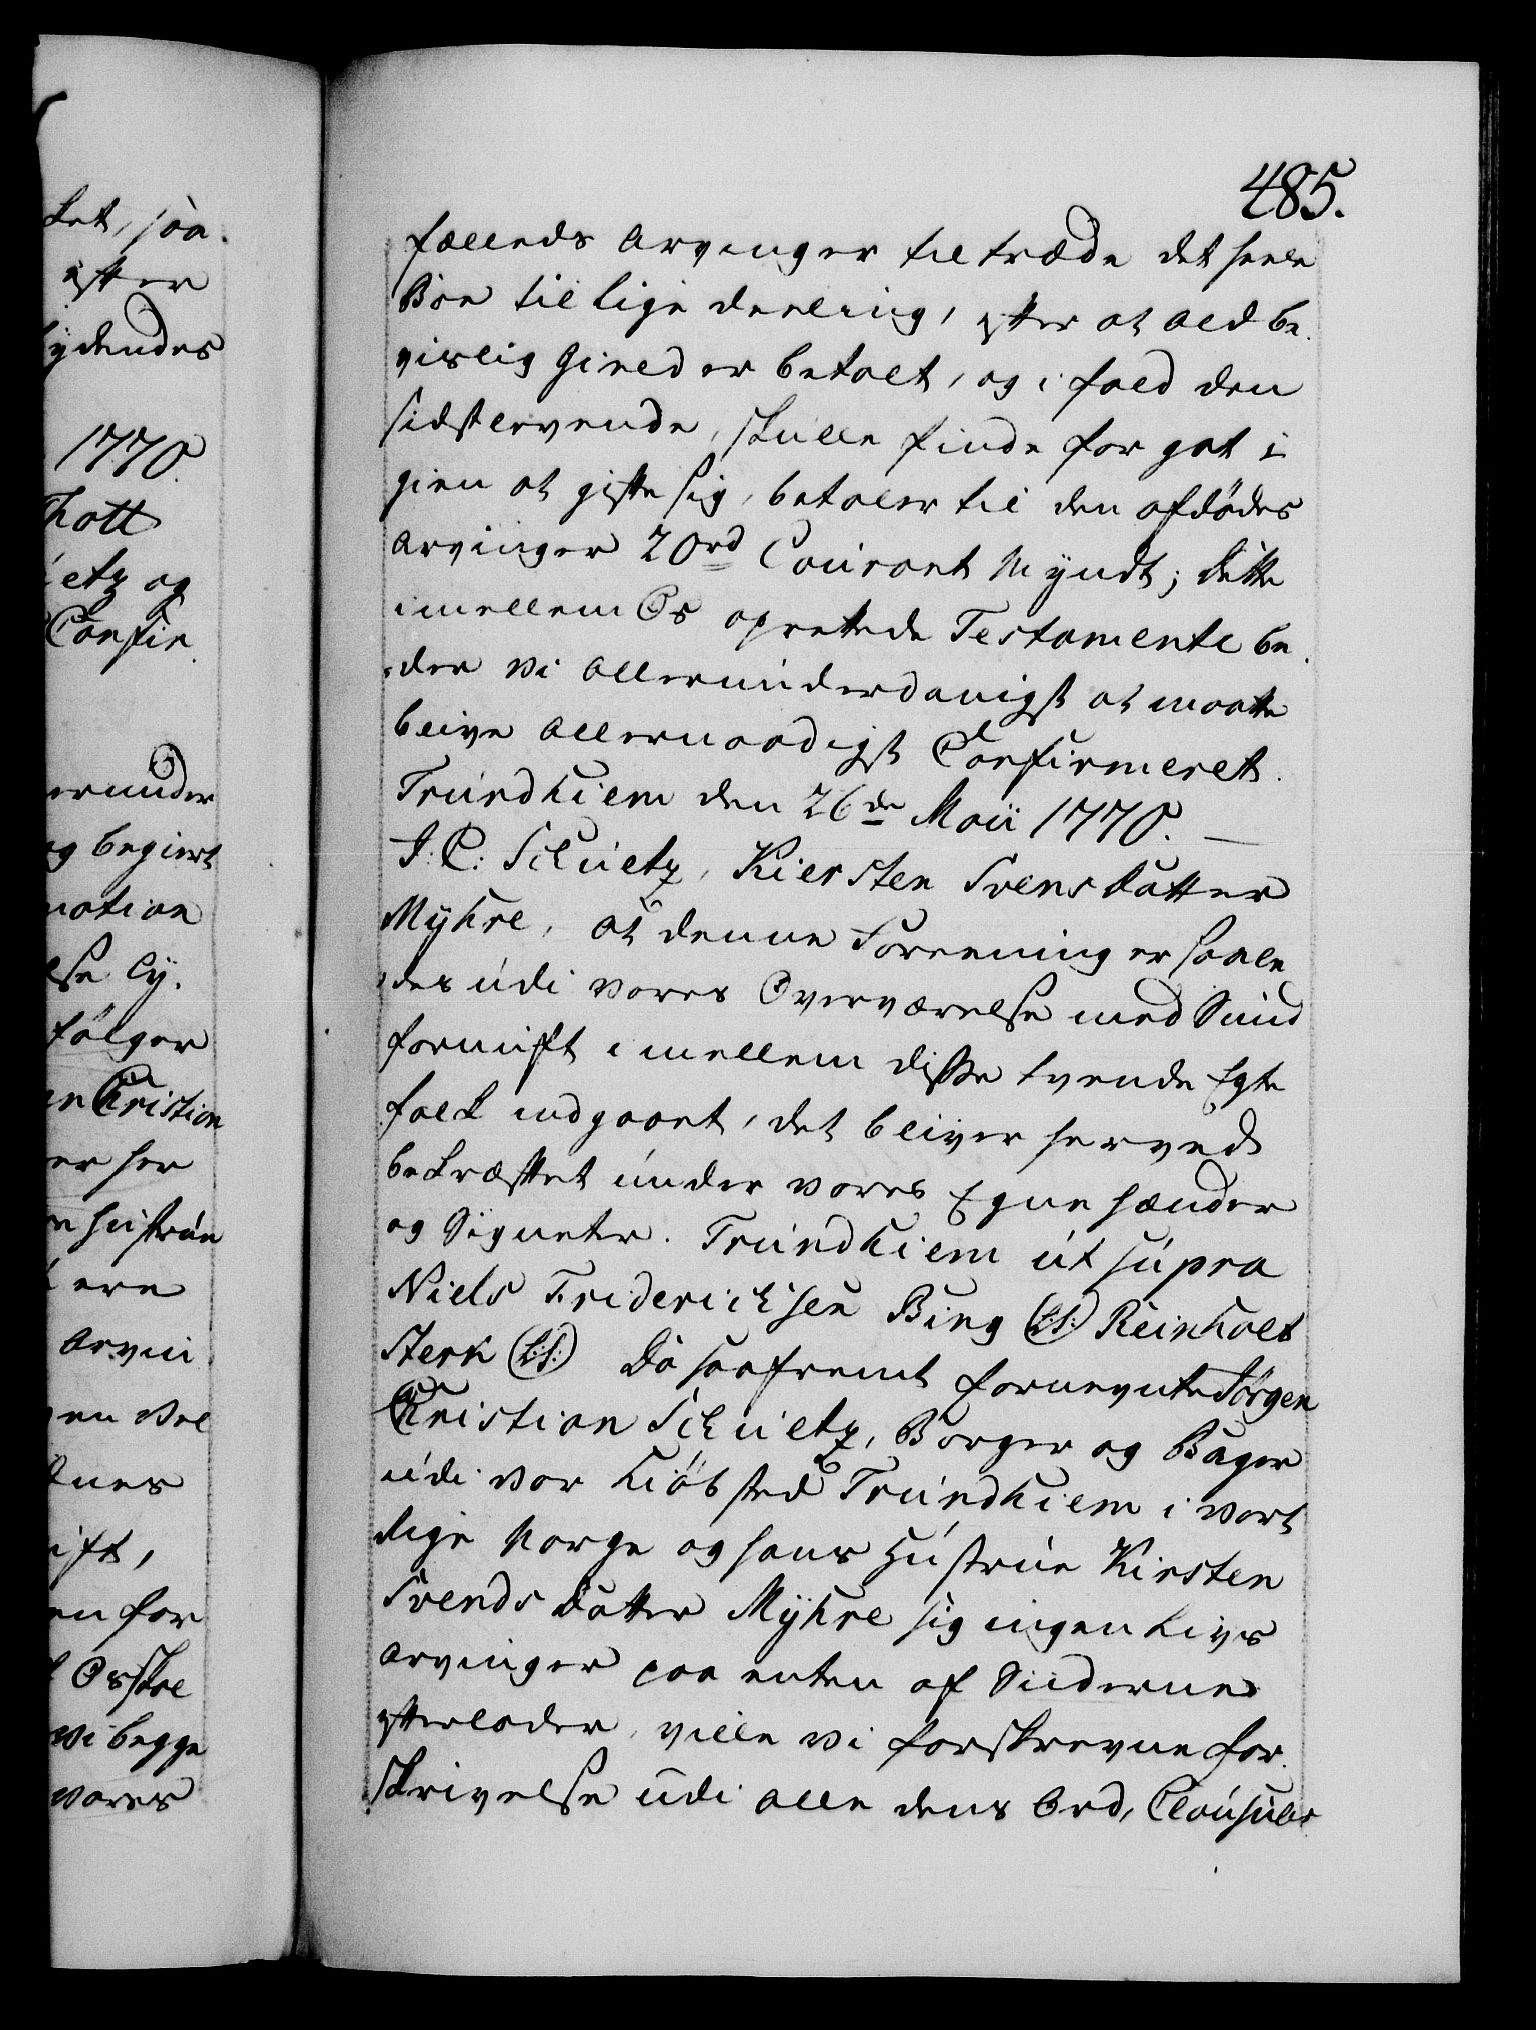 ket, saa
efter
lydendes
1770.
Thott
ietz og
Confir
erunder
og begiert
mation
lse ly.
følger
Christian
er her
Hustrue
ere
Arvin
gen vel
ift,
en for
Os skal
vi begge
vores
485.
fælleds Arvinger tiltræde det heele
Boe til lige deeling, efter at ald be¬
vislig Gield er betalt, og i fald den
sidstlevende, skulle finde for got i¬
gien at gifte sig, betaler til den afdødes
Arvinger 20rd Courant Myndt; dette
imellem Os oprettede Testamente be¬
der vi allerunderdanigst at maatte
blive allernaadigst Confirmeret.
Trundhiem den 26de Maii 1770. —
J: C: Schietz, Kiersten Svensdatter
Myhre, at denne Foreening er saale
des udi vores Overværelse med Sund
fornuft imellem disse tvende Egte
folk indgaaet, det bliver herved
bekræftet under vores Egne Hænder
og Signeter. Trundhiem ut supra
Niels Friderichsen Bing (L:S:) Reinholt
Sterk (L:S:) Da saafremt fornevnte Jørgen
Christian Schietz, Borger og Bager
udi vor Kiøbsted Trundhiem i vort
Rige Norge og hans Hustrue Kirsten
Svends datter Myhre sig ingen Livs
Arvinger paa enten af Siiderne
efterlader, ville vi forskrevne for¬
skrivelse udi alle dens Ord, Clausuler